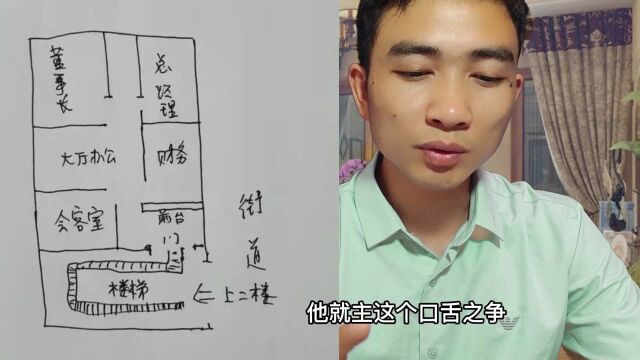 董事长
总经理
大厅办公
财务
会客室
前台
门
街道
楼梯
上二楼
他就主这个口舌之争